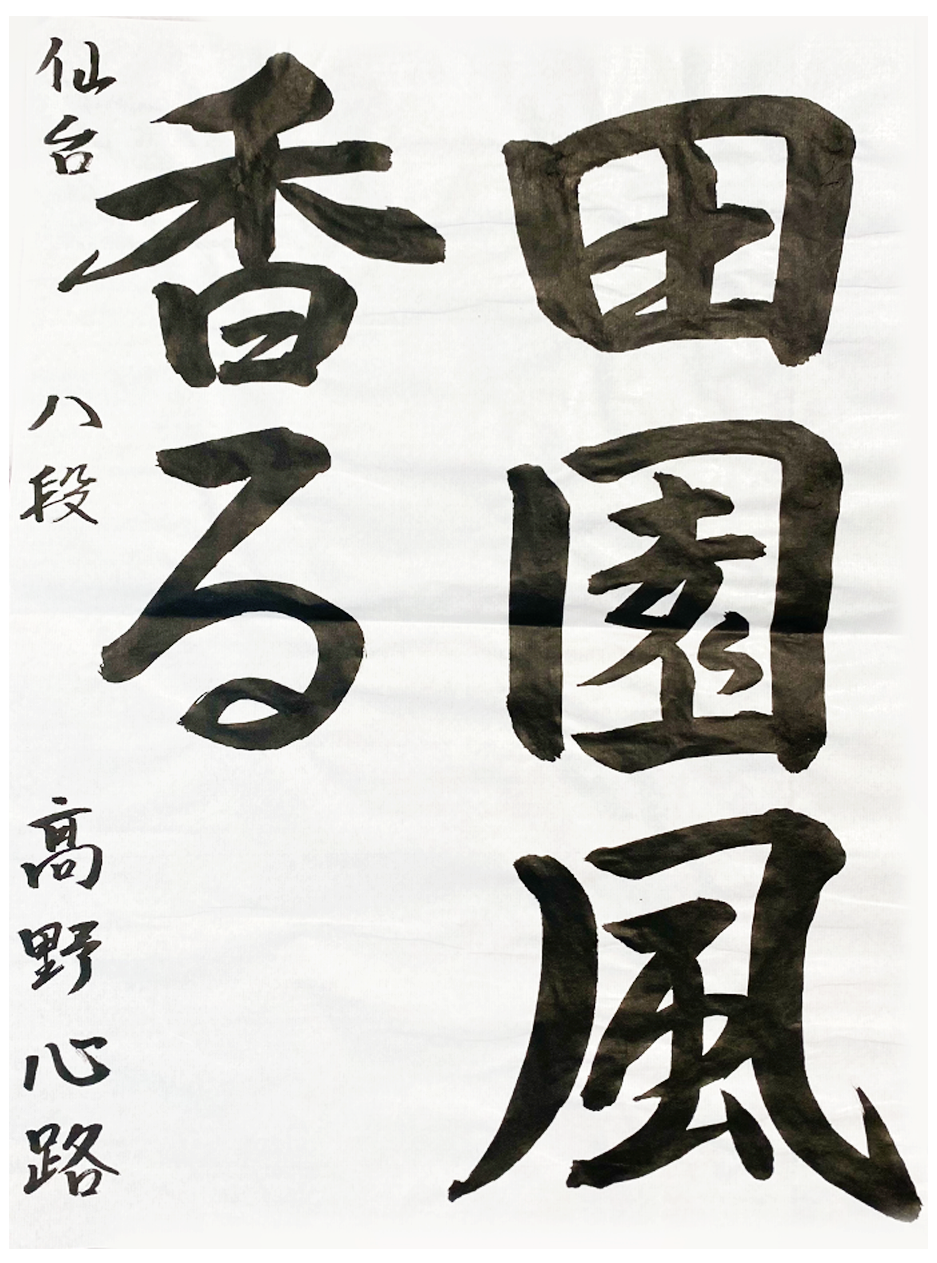 田園風
香る
仙台 八段 高野心路